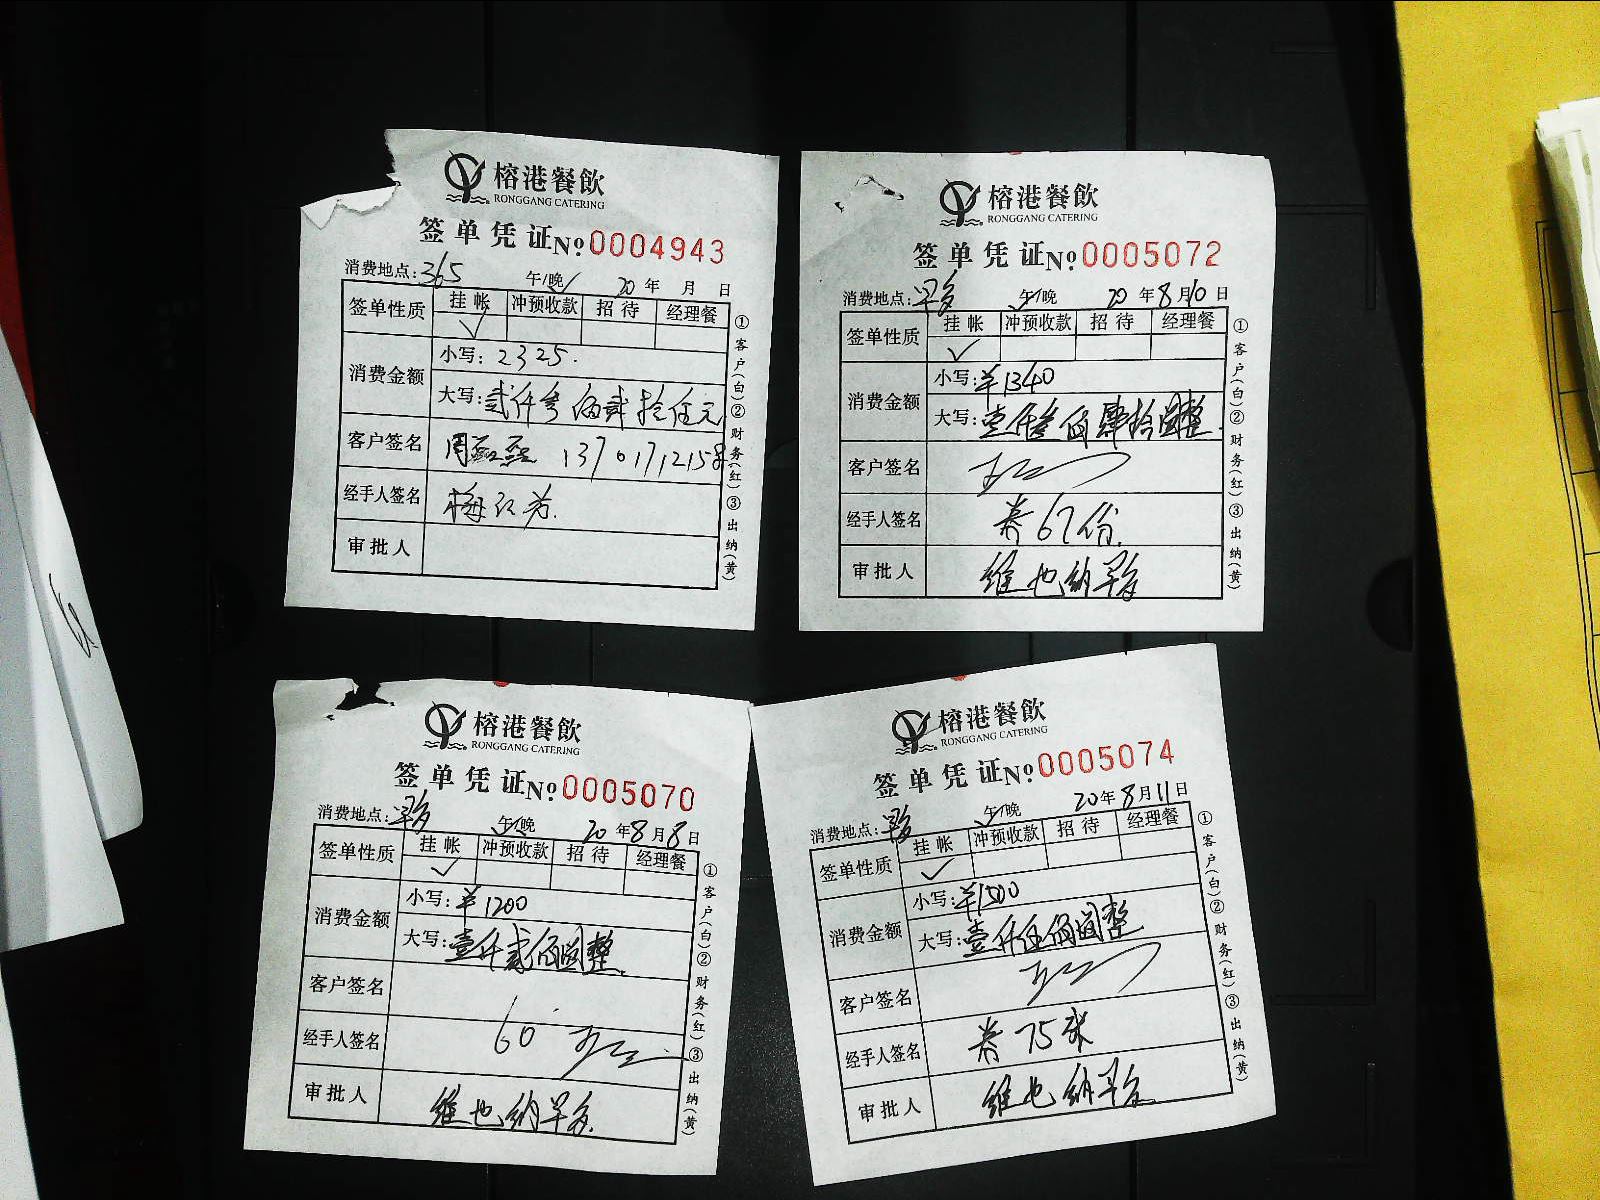 榕港餐飲
RONGGANG CATERING
签单凭证 No 0004943
消费地点: 365 午/晚 20 年 月 日
签单性质 挂帐 冲预收款 招待 经理餐
✓
消费金额
小写: 2325.
大写: 贰仟叁佰贰拾伍元
客户签名 13701712158
经手人签名 梅红芳.
审批人
①客户(白)②财务(红)③出纳(黄)
榕港餐飲
RONGGANG CATERING
签单凭证 No 0005072
消费地点: 早歺 午/晚 20 年 8 月 10 日
签单性质 挂帐 冲预收款 招待 经理餐
✓
消费金额
小写: ¥1340
大写: 壹仟叁佰肆拾圆整.
客户签名
经手人签名 券67份.
审批人 维也纳早歺
①客户(白)②财务(红)③出纳(黄)
榕港餐飲
RONGGANG CATERING
签单凭证 No 0005070
消费地点: 早歺 午/晚 20 年 8 月 8 日
签单性质 挂帐 冲预收款 招待 经理餐
✓
消费金额
小写: ¥1200
大写: 壹仟贰佰圆整.
客户签名
经手人签名 60
审批人 维也纳早歺.
①客户(白)②财务(红)③出纳(黄)
榕港餐飲
RONGGANG CATERING
签单凭证 No 0005074
消费地点: 早歺 午/晚 20 年 8 月 11 日
签单性质 挂帐 冲预收款 招待 经理餐
✓
消费金额
小写: ¥1500
大写: 壹仟伍佰圆整
客户签名
经手人签名 券75张
审批人 维也纳早歺
①客户(白)②财务(红)③出纳(黄)